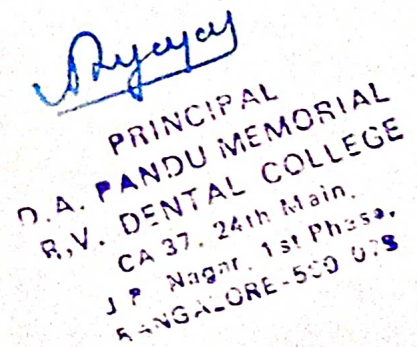 PRINCIPAL
D.A. PANDU MEMORIAL
R.V. DENTAL COLLEGE
CA 37, 24th Main,
J P Nagar, 1st Phase,
BANGALORE-560 078